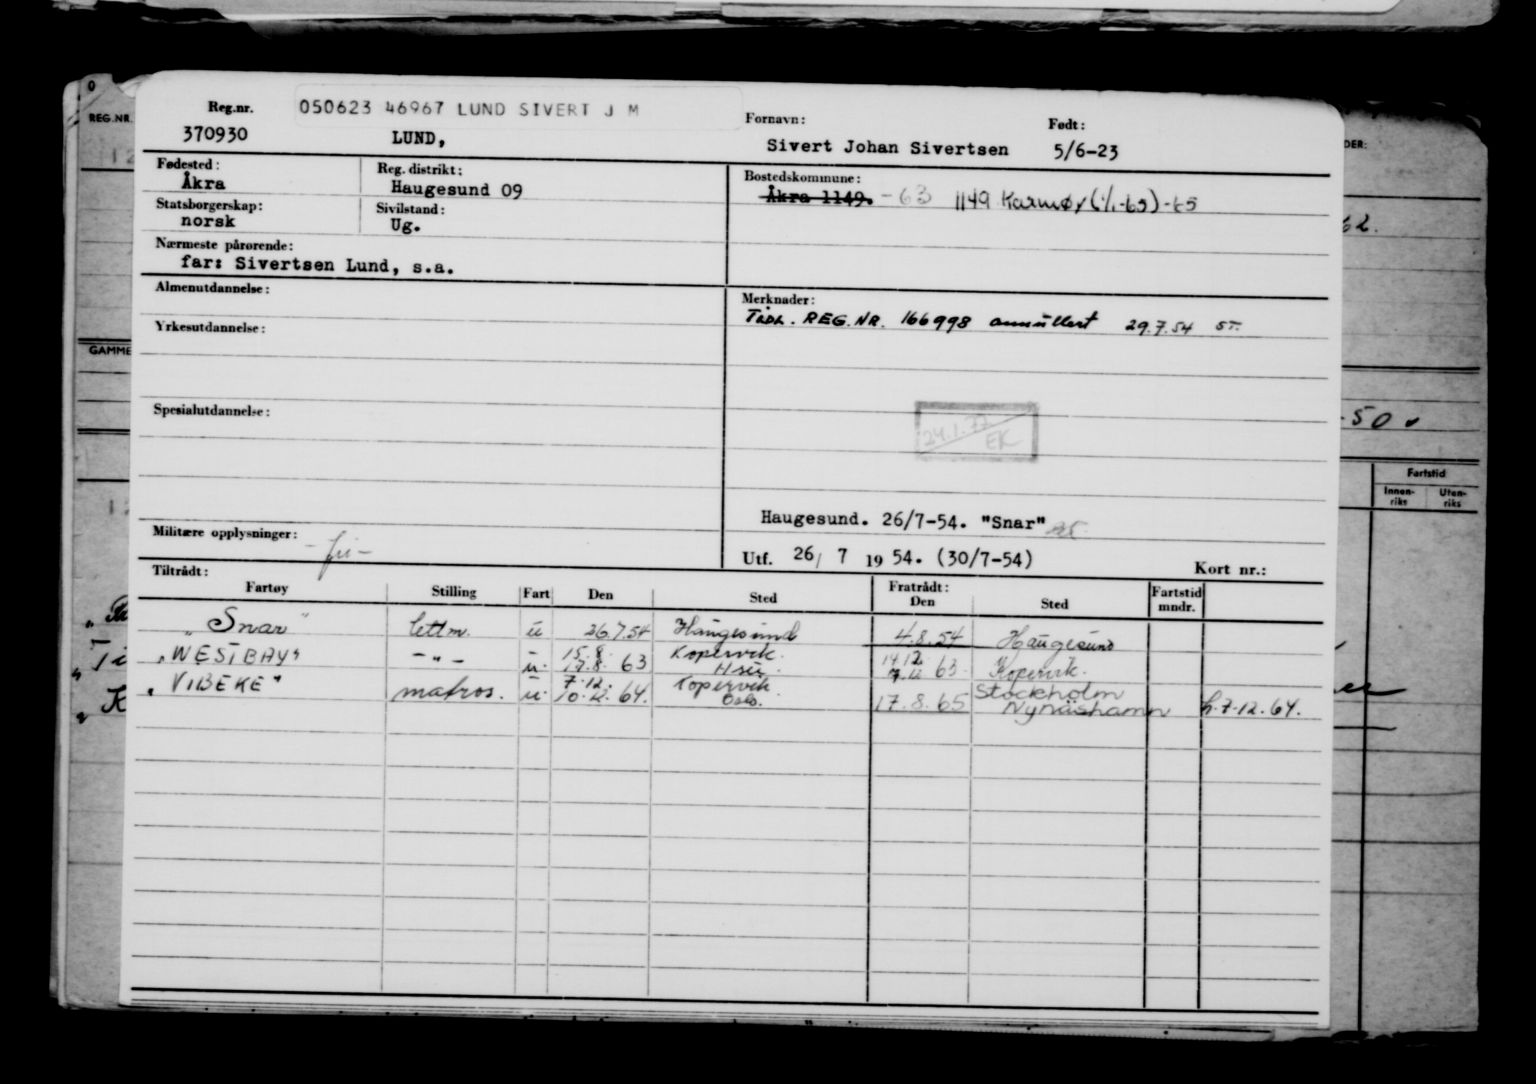 REG.NR.
Reg.nr.
050623 46967 LUND SIVERT J M
370930
LUND,
Fornavn:
Født:
Sivert Johan Sivertsen
5/6-23
Fødested:
Åkra
Reg. distrikt:
Haugesund 09
Bostedskommune:
Åkra 1149. -63 1149 Karmøy (1/1-65)-65
Statsborgerskap:
norsk
Sivilstand:
Ug.
Nærmeste pårørende:
far: Sivertsen Lund, s.a.
Almenutdannelse:
Merknader:
Tidl. REG.NR. 166998 annullert 29.7.54 ST.
Yrkesutdannelse:
GAMME
Spesialutdannelse:
24.1.77
EK
Haugesund. 26/7-54. "Snar"
Militære opplysninger:
Utf. 26/ 7 19 54. (30/7-54)
Kort nr.:
Tiltrådt:
Fratrådt:
Fartøy Stilling Fart Den Sted Den Sted Fartstid mndr.
"Snar" lettm. u 26.7.54 Haugesund 4.8.54 Haugesund
"WESTBAY" -"- u. 15.8. 17.8. 63 Kopervik. 1412 63 Kopervik.
"VIBEKE" matros. u. 7.12. 10.12. 64. Kopervik Oslo. 17.8.65 Stockholm Nynäshamn h.7.12.64.
DER:
62.
-50
Fartstid
Innen-
riks
Uten-
riks